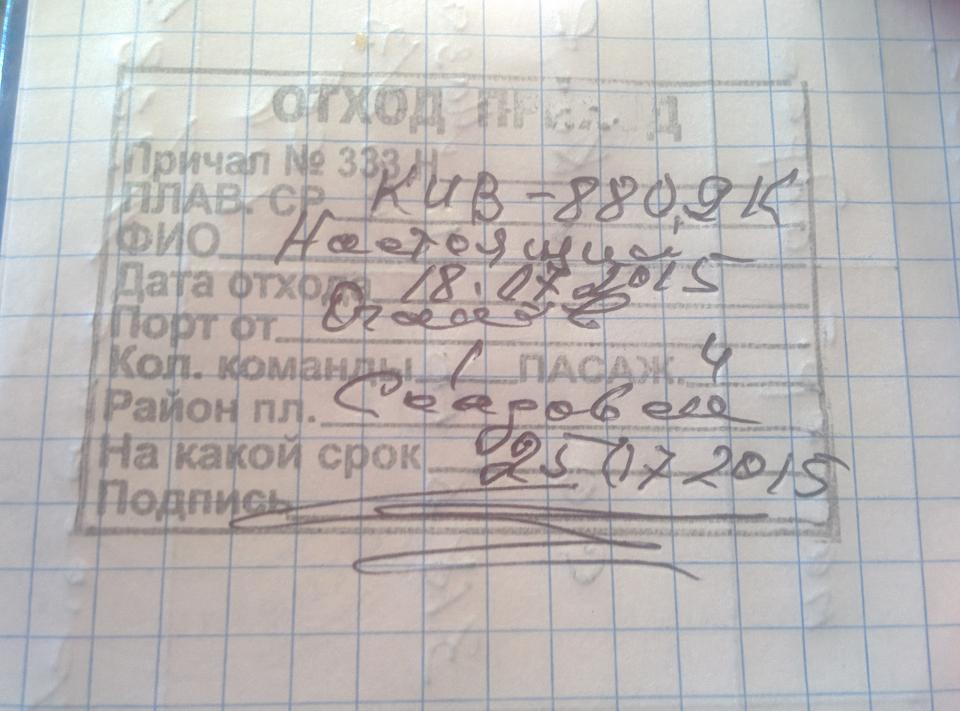 ОТХОД ПРИХОД
Причал № 333 Н
ПЛАВ. СР. КИВ - 8809К
ФИО Настоящий
Дата отхода 18.07.2015
Порт от.
Кол. команды 1 ПАСАЖ. 4
Район пл.
На какой срок 25 07 2015
Подпись